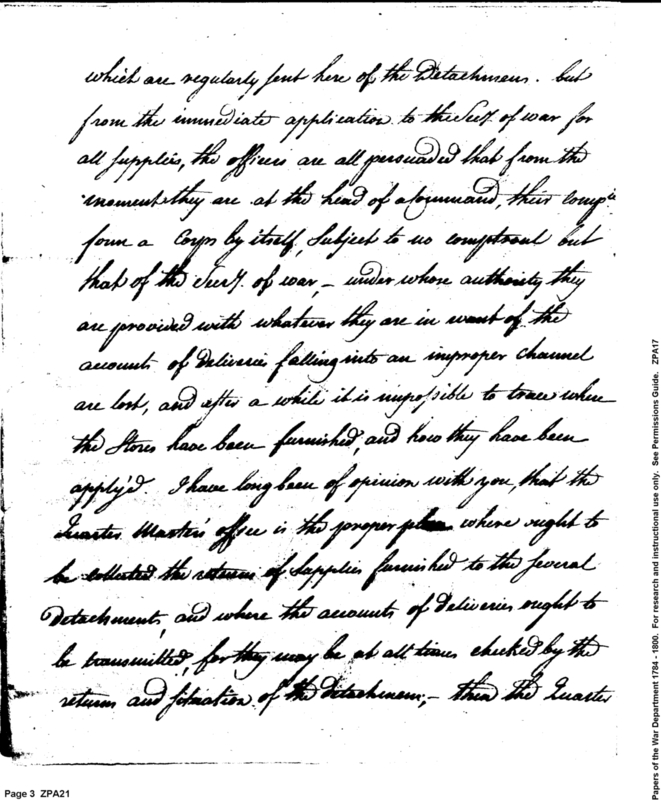 which are regularly sent here of the Detachmens. but
from the immediate application to the Secy. of war for
all supplies, the officers are all persuaded that from the
moment they are at the head of a Command, their comp.ie
form a Corps by itself, Subject to no comptroul but
that of the Secy. of war, – under whose authority they
are provided with whatever they are in want of. the
accounts of Deliveries falling into an improper channel
are lost, and after a while it is impossible to trace where
the Stores have been furnished, and how they have been
apply'd. I have long been of opinion with you, that the
Quarter Master's office is the proper place where ought to
be collected the returns of Supplies furnished to the several
Detachments, and where the accounts of Deliveries ought to
be transmitted, for they may be at all times checked by the
returns and situation of the Detachmens; – then the Quarter
Page 3 ZPA21
Papers of the War Department 1784 - 1800. For research and instructional use only. See Permissions Guide. ZPA17